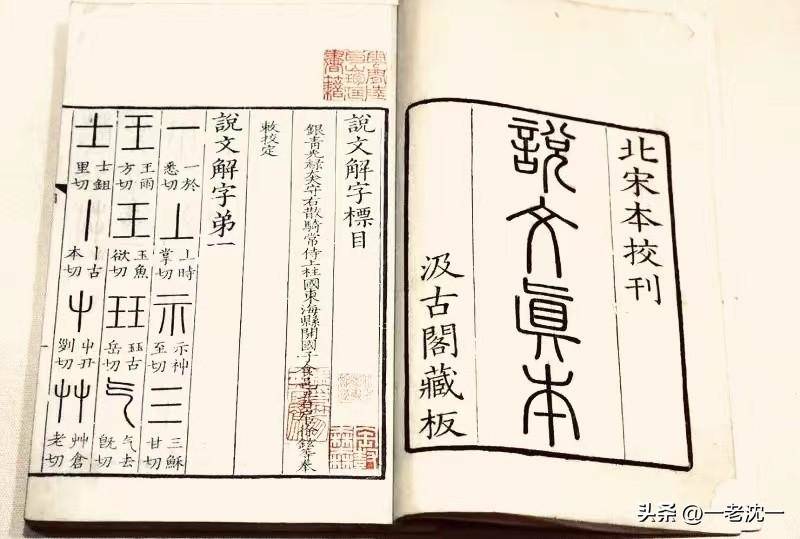 北宋本校刊
說文眞本
汲古閣藏板
說文解字標目
銀青光祿大夫守右散騎常侍上柱國東海縣開國子食邑五百戶徐鉉等奉
敕校定
說文解字弟一
一 一於悉切 丄 丄時掌切 示 示神至切 三 三穌甘切
王 王雨方切 玉 玉魚欲切 玨 玨古岳切 气 气去旣切
士 士鉏里切 丨 丨古本切 屮 屮丑列切 艸 艸倉老切
头条 @一老沈一